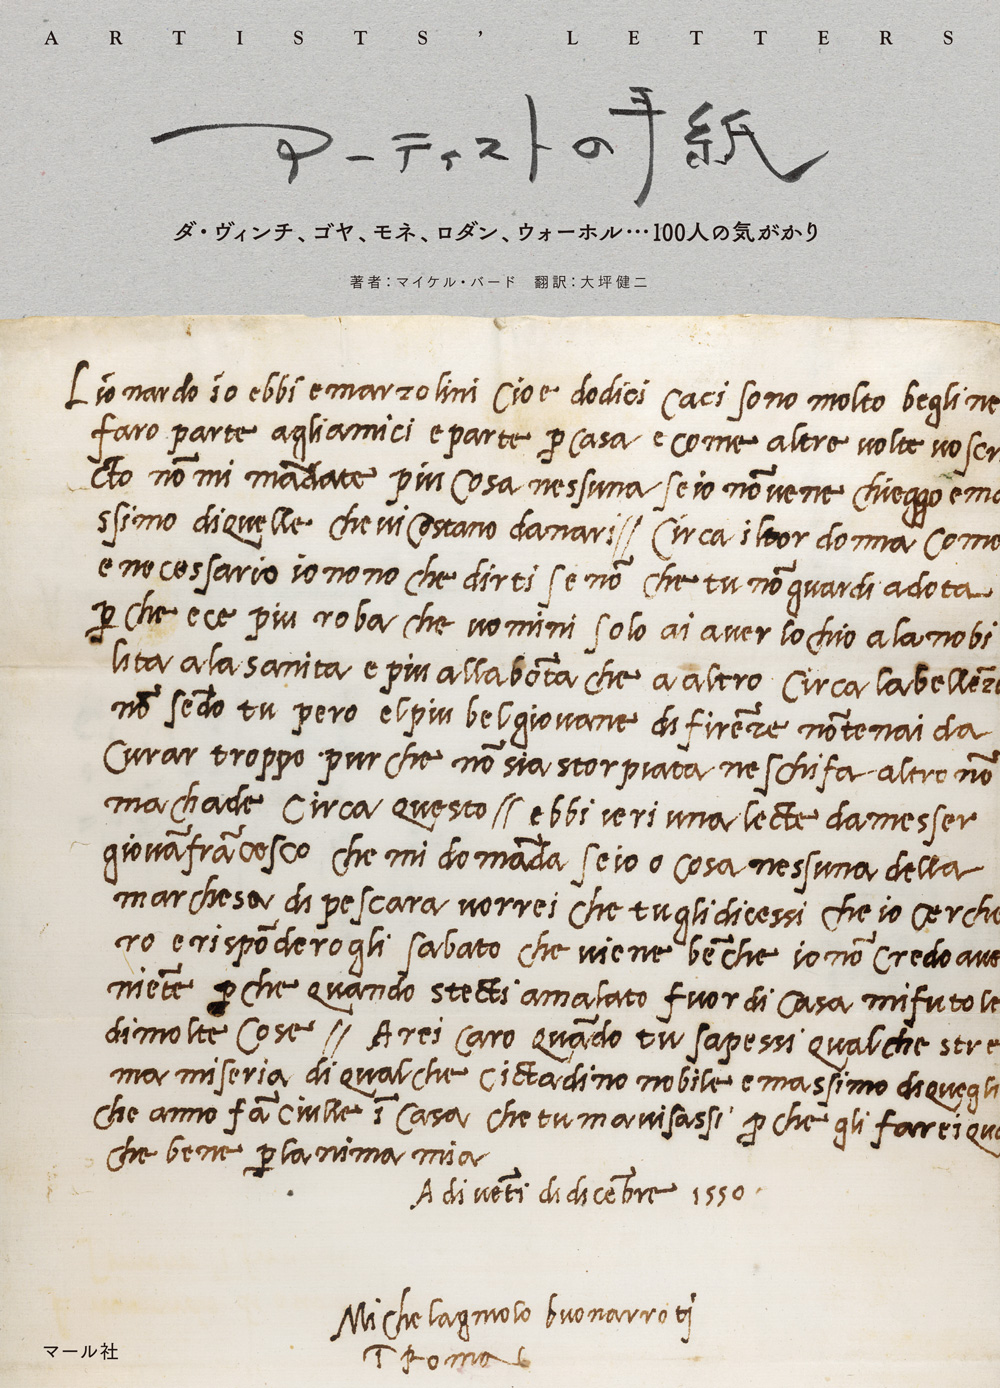 ARTISTS' LETTERS
アーティストの手紙
ダ・ヴィンチ、ゴヤ、モネ、ロダン、ウォーホル…100人の気がかり
著者:マイケル・バード 翻訳:大坪健二
Lionardo io ebbi e marzolini cioe dodici caci sono molto begli ne
faro parte agli amici e parte p casa e come altre volte vo scr
cto nō mi mādate piu cosa nessuna se io nō ve ne chieggo e ma
ssimo di quelle che vi costano danari // Circa il tor donna come
e necessario io no no che dirti se nō che tu nō guardi a dota
p che e ce piu roba che uomini solo ai aver lochio a la nobi
lita a la sanita e piu alla bōta che a altro Circa la belleze
nō sēdo tu pero el piu bel giovane di firēze nō te nai da
curar troppo pur che nō sia storpiata ne schifa altro nō
ma chade circa questo // ebbi ieri una lecte da messer
giovāfrācesco che mi domāda se io o cosa nessuna della
marchesa di pescara vorrei che tu gli dicessi che io cerche
ro e rispōderogli sabato che viene bēche io nō credo ave
niēte p che quando stecti amalato fuor di casa mi fu tole
di molte cose // Arei caro quādo tu sapessi qualche stre
ma miseria di qualche cictadino nobile e massimo di quegli
che anno fāciulle ī casa che tu mavisassi p che gli farei qua
che bene p lanima mia
A di vēti di dicēbre 1550
Michelagniolo buonarroti
ī Roma
マール社